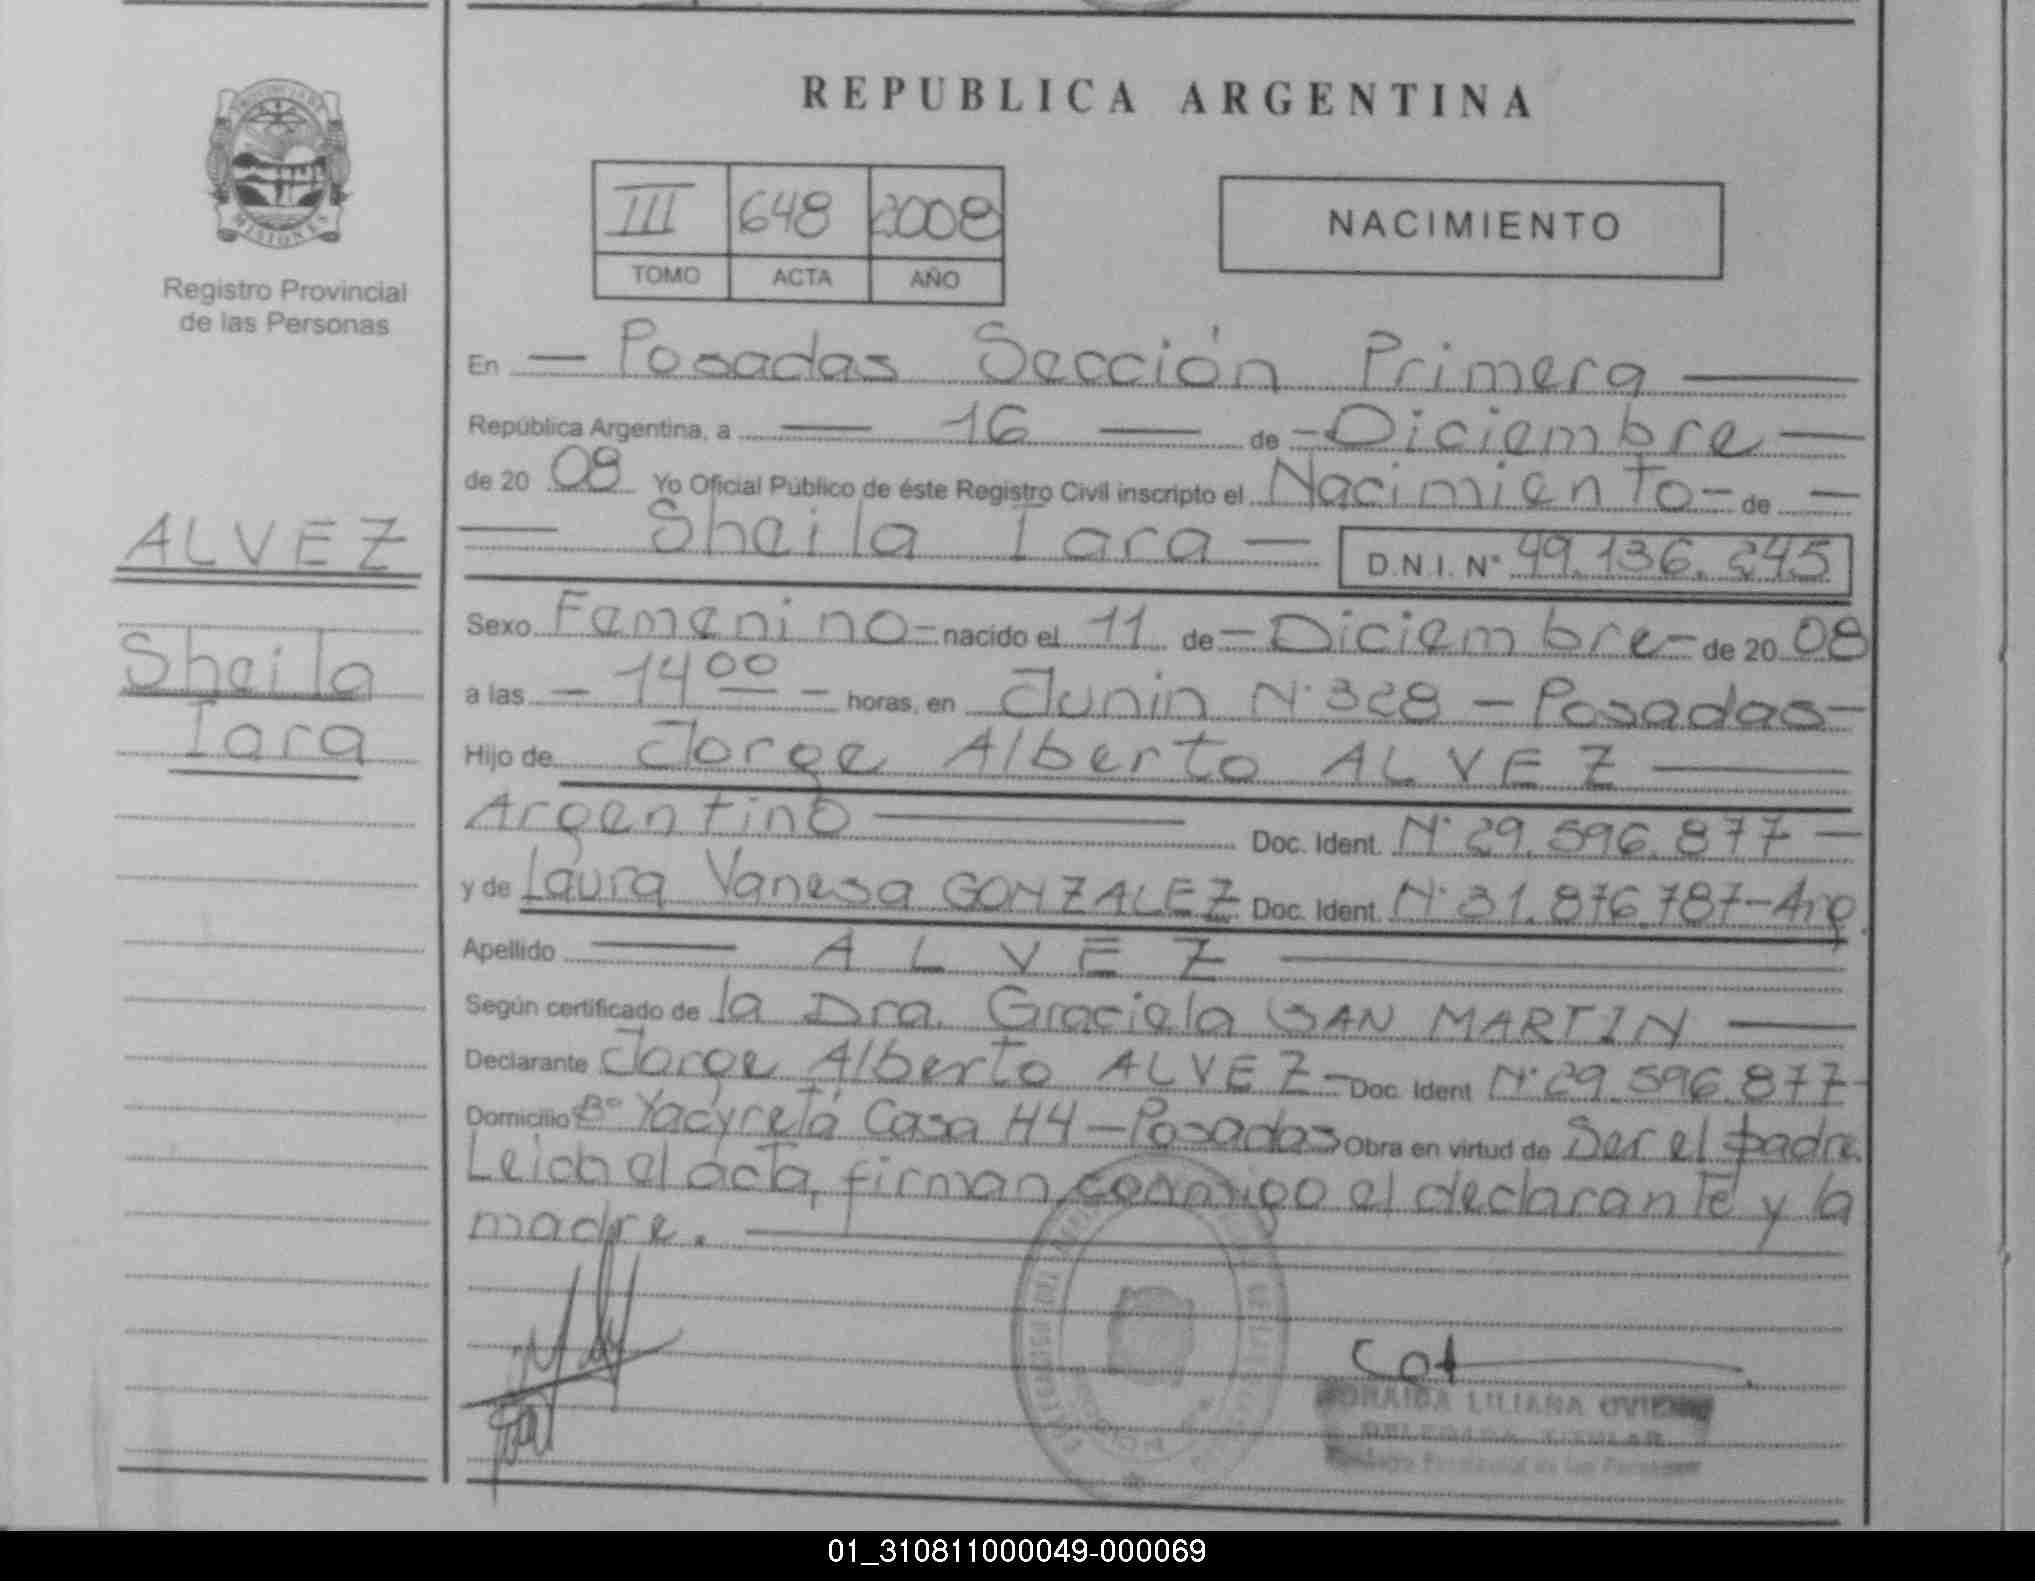 REPUBLICA ARGENTINA
PROVINCIA DE
MISIONES
Registro Provincial
de las Personas
III 648 2008
TOMO ACTA AÑO
NACIMIENTO
En Posadas Sección Primera
República Argentina, a 16 de Diciembre
de 20 08 Yo Oficial Público de éste Registro Civil inscripto el Nacimiento de
Sheila Iara D.N.I. N° 49.136.245
ALVEZ
Sheila
Iara
Sexo Femenino nacido el 11 de Diciembre de 20 08
a las 14 00 horas, en Junin N° 328 - Posadas
Hijo de Jorge Alberto ALVEZ
Argentino Doc. Ident. N° 29.596.877
y de Laura Vanesa GONZALEZ Doc. Ident. N° 31.876.787-Arg.
Apellido ALVEZ
Según certificado de la Dra. Graciela SAN MARTIN
Declarante Jorge Alberto ALVEZ Doc. Ident N° 29.596.877
Domicilio B° Yacyretá Casa 44 - Posadas Obra en virtud de Ser el padre.
Leida el acta, firman conmigo el declarante y la
madre.
LILIANA
DELEGADA TITULAR
Registro Provincial de las Personas
01_310811000049-000069